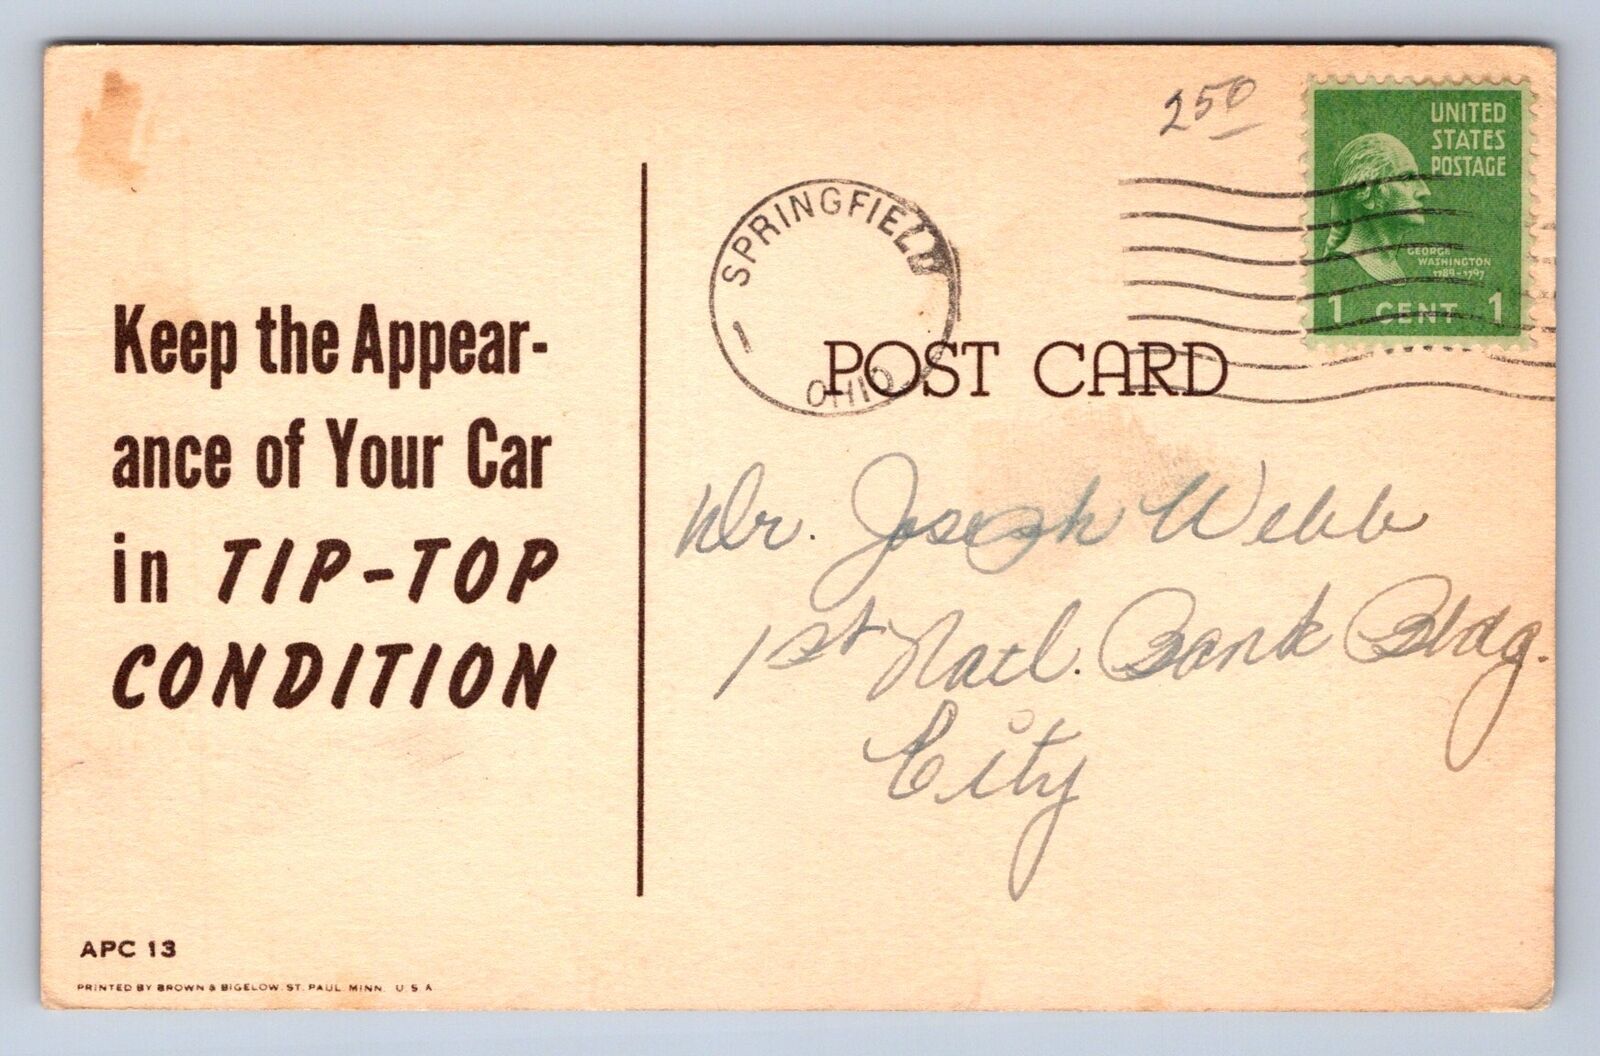 250
UNITED
STATES
POSTAGE
GEORGE
WASHINGTON
1789-1797
1 CENT 1
SPRINGFIELD
1
OHIO
POST CARD
Keep the Appear-
ance of Your Car
in TIP-TOP
CONDITION
Dr. Joseph Webb
1st Natl. Bank Bldg.
City
APC 13
PRINTED BY BROWN & BIGELOW, ST. PAUL, MINN. U S A